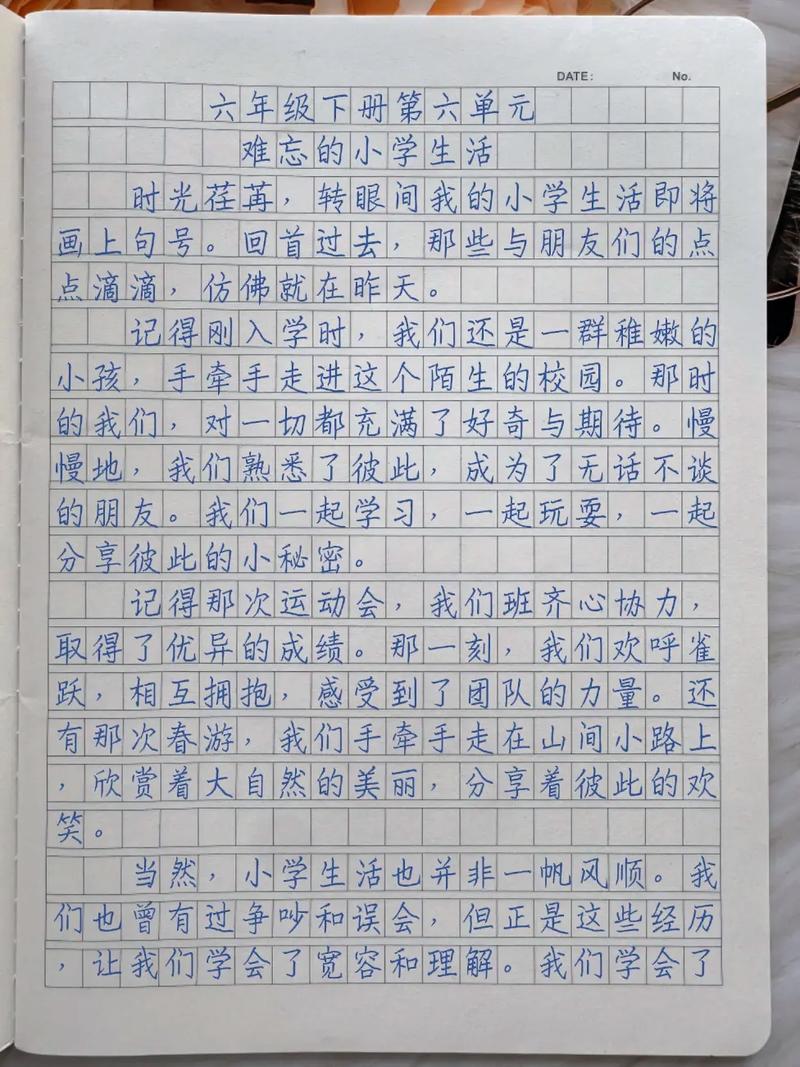 DATE: No.
六年级下册第六单元
难忘的小学生活
时光荏苒，转眼间我的小学生活即将
画上句号。回首过去，那些与朋友们的点
点滴滴，仿佛就在昨天。
记得刚入学时，我们还是一群稚嫩的
小孩，手牵手走进这个陌生的校园。那时
的我们，对一切都充满了好奇与期待。慢
慢地，我们熟悉了彼此，成为了无话不谈
的朋友。我们一起学习，一起玩耍，一起
分享彼此的小秘密。
记得那次运动会，我们班齐心协力，
取得了优异的成绩。那一刻，我们欢呼雀
跃，相互拥抱，感受到了团队的力量。还
有那次春游，我们手牵手走在山间小路上
，欣赏着大自然的美丽，分享着彼此的欢
笑。
当然，小学生活也并非一帆风顺。我
们也曾有过争吵和误会，但正是这些经历
，让我们学会了宽容和理解。我们学会了